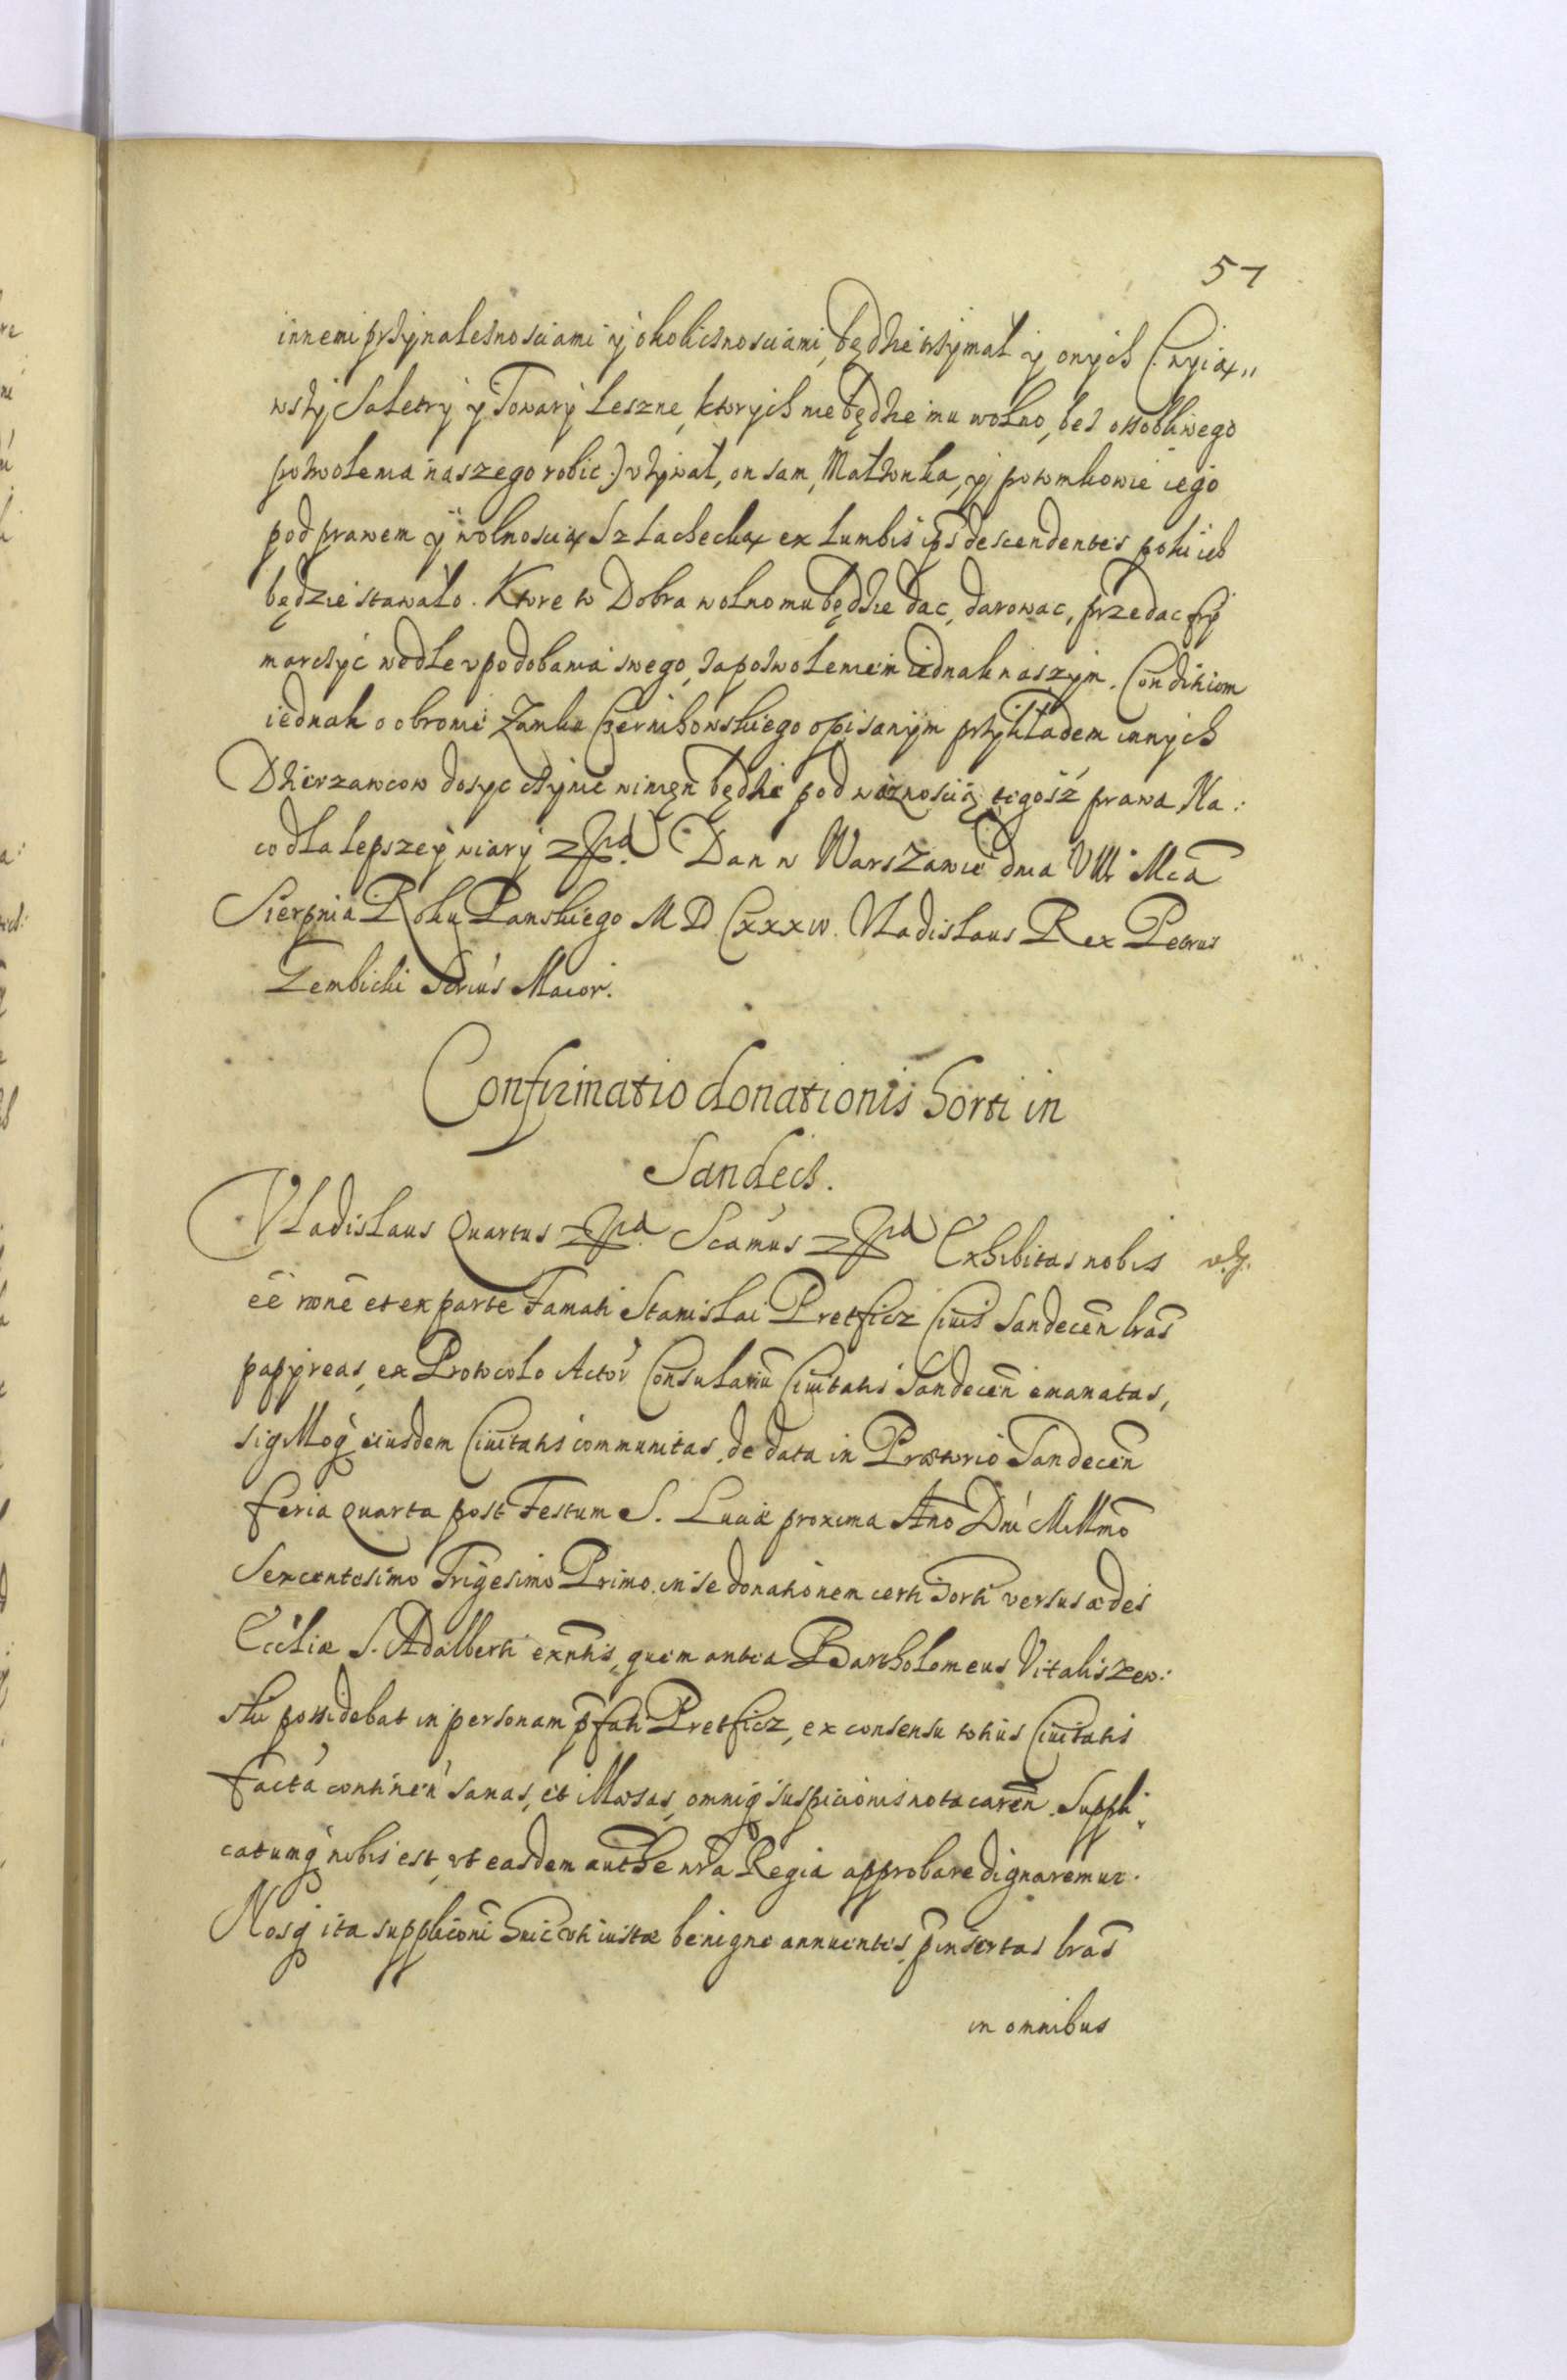 57
innemi przynaleznosciami y okolicznosciami, będzie trzymał y onych (: wyiąw„
wszy Saletry y Towary Leszne, ktorych nie będzie mu wolno, bez ossobliwego
pozwolenia naszego robic :) vżywał, on sam, Małżonka, y potomkowie iego
pod prawem y wolnoscią Szlachecką ex lumbis ips descendentes poki ich
będzie stawało. Ktore to Dobra wolno mu będzie dac, darowac, przedac fry
marczyć wedle vpodobania swego, za pozwoleniem iednak naszym. Conditiom
iednak o obronie Zamku Czernihowskiego opisanym przykładem innych
Dzierzawcow dosyc czynic winien będzie pod waznoscią tegosz prawa Na:
co dla lepszey wiary Dan w Warszawie dnia VIII Mca
Sierpnia Roku Panskiego MDCxxxiv. Vladislaus Rex Petrus
Gembicki Scrius Maior.
Confirmatio donationis horti in
Sandecz.
Vladislaus Quartus Scamus Exhibitas nobis
ee none et ex parte Famati Stanislai Pretficz Ciuis Sandecen lras
papyreas, ex Protocolo Actor Consulariu Ciuitatis Sandecen emanatas,
sigilloq eiusdem Ciuitatis communitas, de data in Prætorio Sandecen
feria quarta post Festum S. Luciæ proxima Ano Dni Millmo
Sexcentesimo Trigesimo Primo, in se donationem certi horti versus ædes
Ecclæ S. Adalberti exntis, quem antea Bartholomeus Vitaliszew:
ski possidebat in personam pfati Pretficz, ex consensu totius Ciuitatis
facta continen sanas, et illæsas, omniq suspicionis nota caren. Suppli„
catumq nobis est, vt easdem authe nra Regia approbare dignaremur.
Nosq ita supplicōni huic vti iustæ benigne annuentes, pinsertas lras
in omnibus